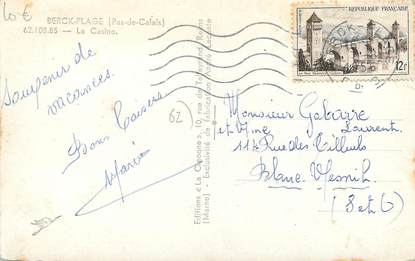 10€
BERCK-PLAGE (Pas-de-Calais)
62.108.85 — Le Casino.
Souvenir de
vacances.
Bons baisers
Marie
62
Editions « La Cigogne », 10, rue de Talleyrand, Reims
(Marne) - Exclusivité de fabrication
REPUBLIQUE FRANÇAISE
12F
Monsieur
et Mme Laurent
114 Rue des Tilleuls
Blanc-Mesnil
(S et O)